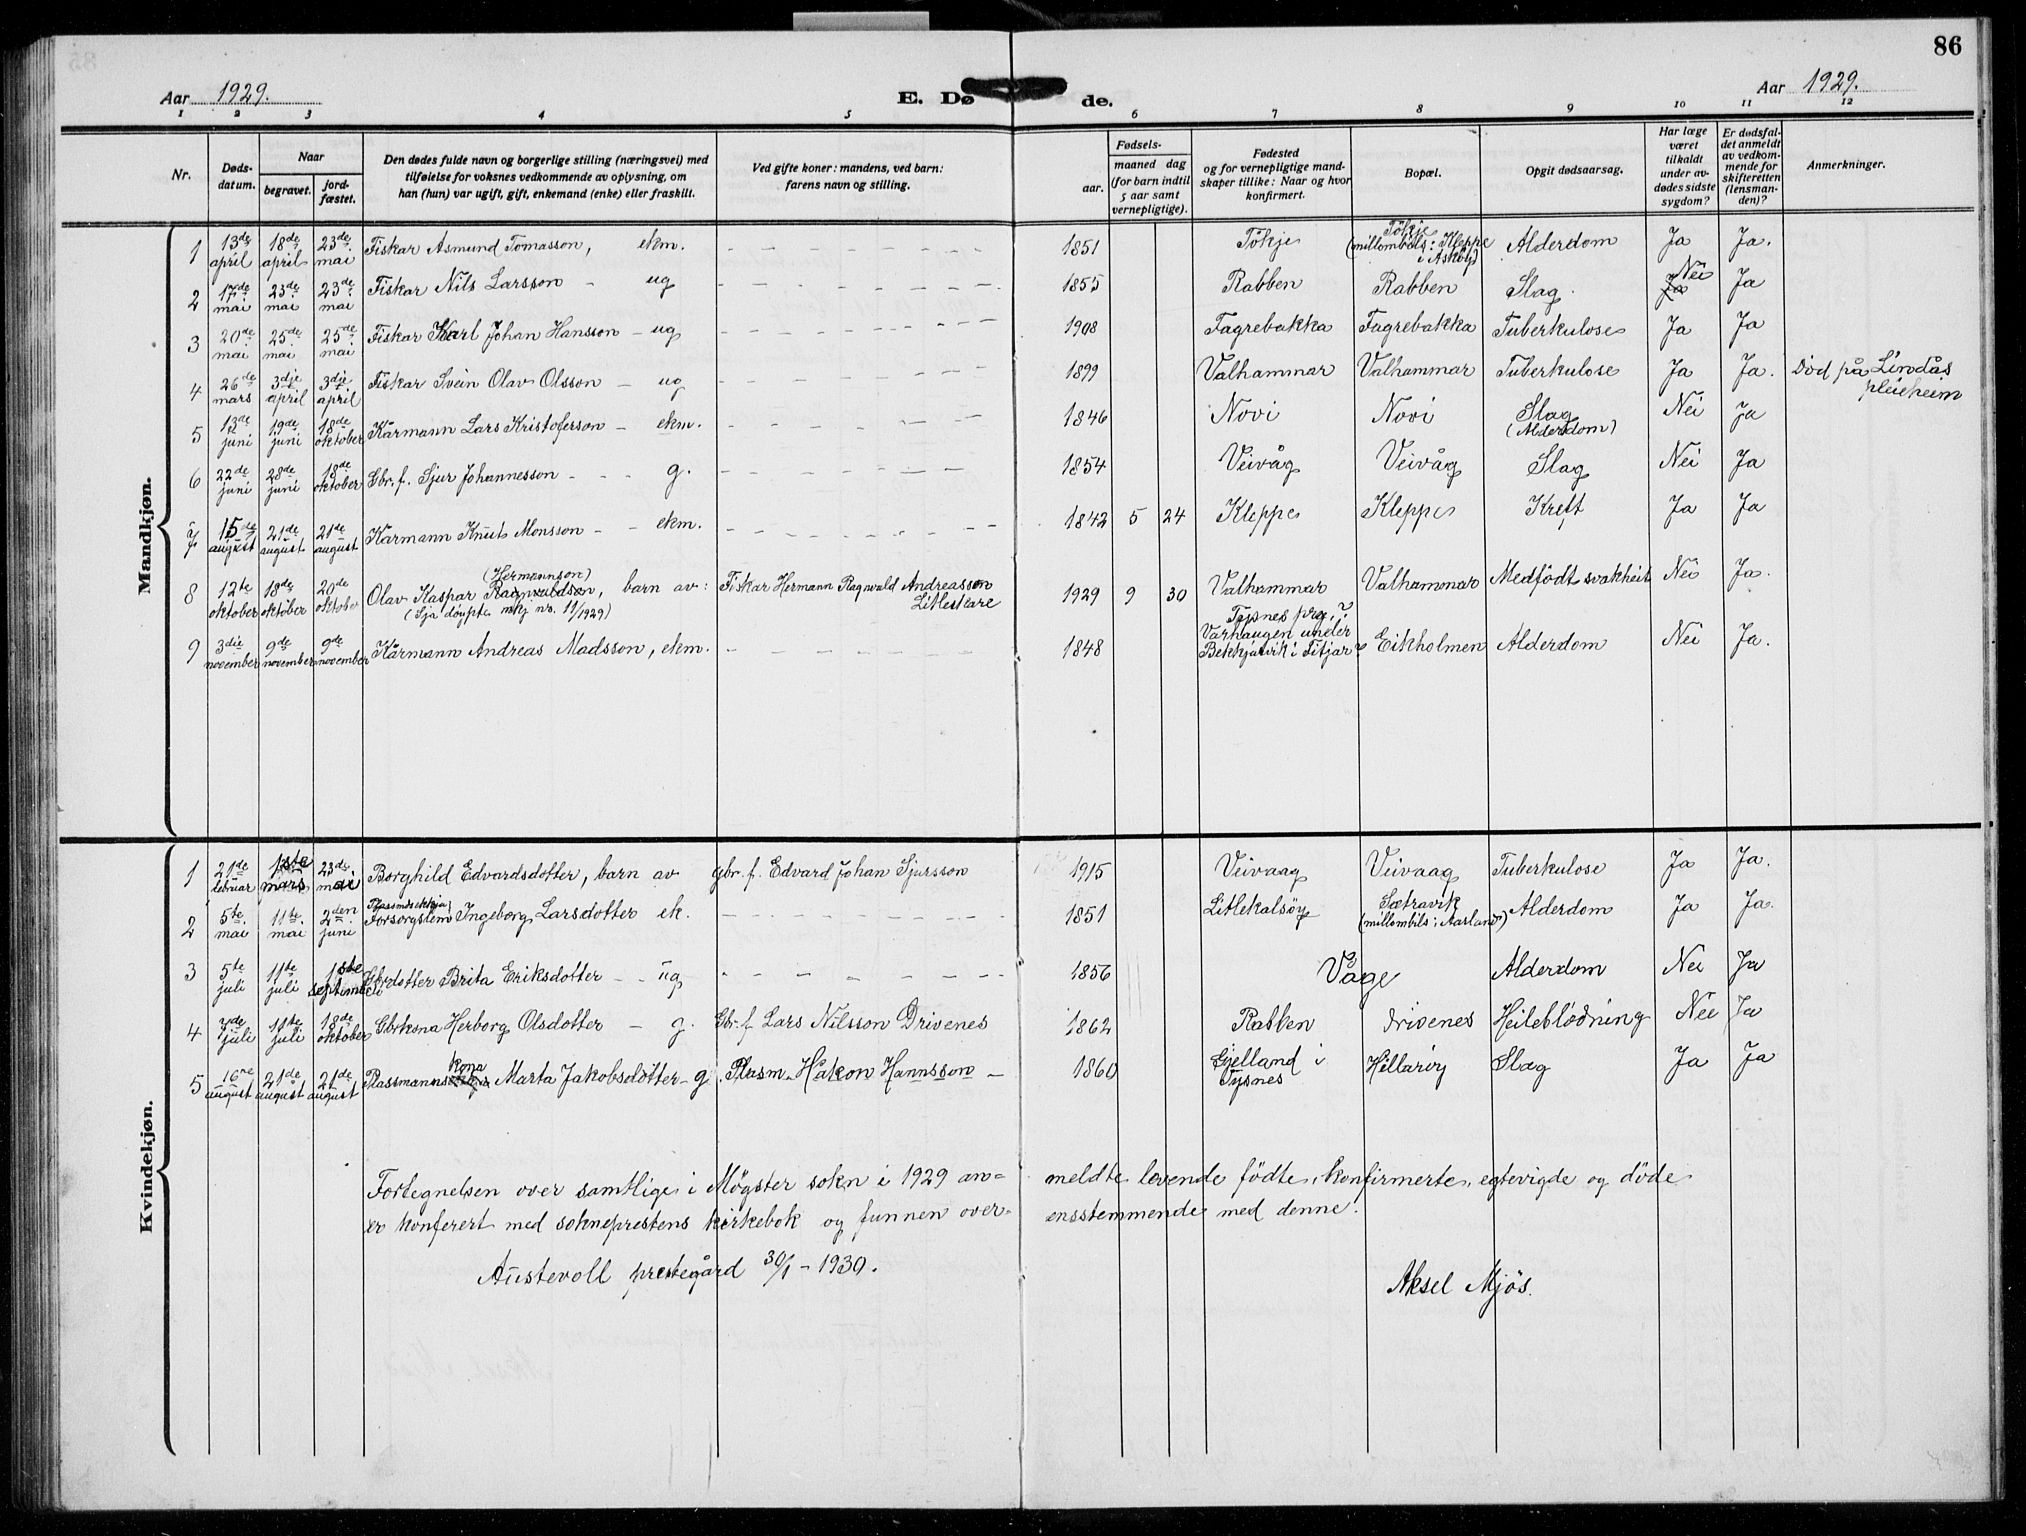 86
Aar 1929.
E. Dø de.
Aar 1929.
1 2 3 4 5 6 7 8 9 10 11 12
Nr.
Døds-
datum.
Naar
begravet.
jord-
fæstet.
Den dødes fulde navn og borgerlige stilling (næringsvei) med
tilføielse for voksnes vedkommende av oplysning, om
han (hun) var ugift, gift, enkemand (enke) eller fraskilt.
Ved gifte koner: mandens, ved barn:
farens navn og stilling.
Fødsels-
aar.
maaned dag
(for barn indtil
5 aar samt
vernepligtige).
Fødested
og for vernepligtige mand-
skaper tillike: Naar og hvor
konfirmert.
Bopæl.
Opgit dødsaarsag.
Har læge
været
tilkaldt
under av-
dødes sidste
sygdom?
Er dødsfal-
det anmeldt
av vedkom-
mende for
skifteretten
(lensman-
den)?
Anmerkninger.
Mandkjøn.
1 13de april 18de april 23de mai Fiskar Asmund Tomasson, ekm. 1851 Tökje Tökje (millombils: Kleppe i Asköy) Alderdom Ja Ja.
2 17de mai 23de mai 23de mai Fiskar Nils Larsson - ug 1855 Rabben Rabben Slag. Ja Nei Ja
3 20de mai 25de mai 25de mai Fiskar Karl Johan Hansson - ug 1908 Fagrebakka Fagrebakka Tuberkulose Ja Ja
4 26de mars 3dje april 3die april Fiskar Svein Olav Olsson - ug 1899 Valhammar Valhammar Tuberkulose Ja Ja. Död på Lindås pleieheim
5 13de juni 19de juni 18de oktober Kårmann Lars Kristoferson - ekm. 1846 Novi Novi Slag (Alderdom) Nei Ja
6 22de juni 28de juni 18de oktober Gbr.f. Sjur Johannesson - - - g. 1854 Veivåg Veivåg Slag Nei Ja
7 15de august 21de august 21de august Kårmann Knut Monsson - - ekm. 1842 5 24 Kleppe Kleppe Kreft Ja Ja
8 12te oktober 18de oktober 20de oktober Olav Kaspar Ragnvaldson, (Hermannson) barn av: Fiskar Hermann Ragnvald Andreasson 1929 9 30 Valhammar Valhammar Medfödt svakheit Nei Ja.
(Sjå döypte mkj nr. 11/1929)
9 3die november 9de november 9de november Kårmann Andreas Madsson, ekm. 1848 Tysnes prg.? Varhaugen under Bekkjarvik i Fitjar? Eikholmen Alderdom Nei Ja.
Kvindekjøn.
1 21de februar 1ste mars 23de mai Borghild Edvardsdotter, barn av gbr.f. Edvard Johan Sjursson 1915 Veivaag Veivaag Tuberkulose Ja Ja.
2 5te mai 11te mai 2den juni Forsorgslem Ingeborg Larsdotter ek. 1851 Litlekalsöy Sætravik (millombils i Aarland) Alderdom Ja Ja.
3 5te juli 11te juli 1ste september Gbrdotter Brita Eriksdotter - - ug 1856 Våge Alderdom Nei Ja
4 7de juli 11te juli 18de oktober Gbrkona Herborg Olsdotter - g. Gbr.f Lars Nilsson Drivenes 1862 Rabben Drivenes Heileblödning Nei Ja
5 16de august 21de august 21de august Plassmannskona Marta Jakobsdotter - g. Plasm. Håkon Hannsson - 1860 Gjelland i Tysnes Hillaröy Slag Ja Ja
Fortegnelsen over samtlige i Møgster sokn i 1929 an= meldte levende födte, konfirmerte, egtevigde og döde
er konferert med sokneprestens kirkebok og funnen over= ensstemmende med denne.
Austevoll prestegård 30/1 - 1930. Aksel Mjös.